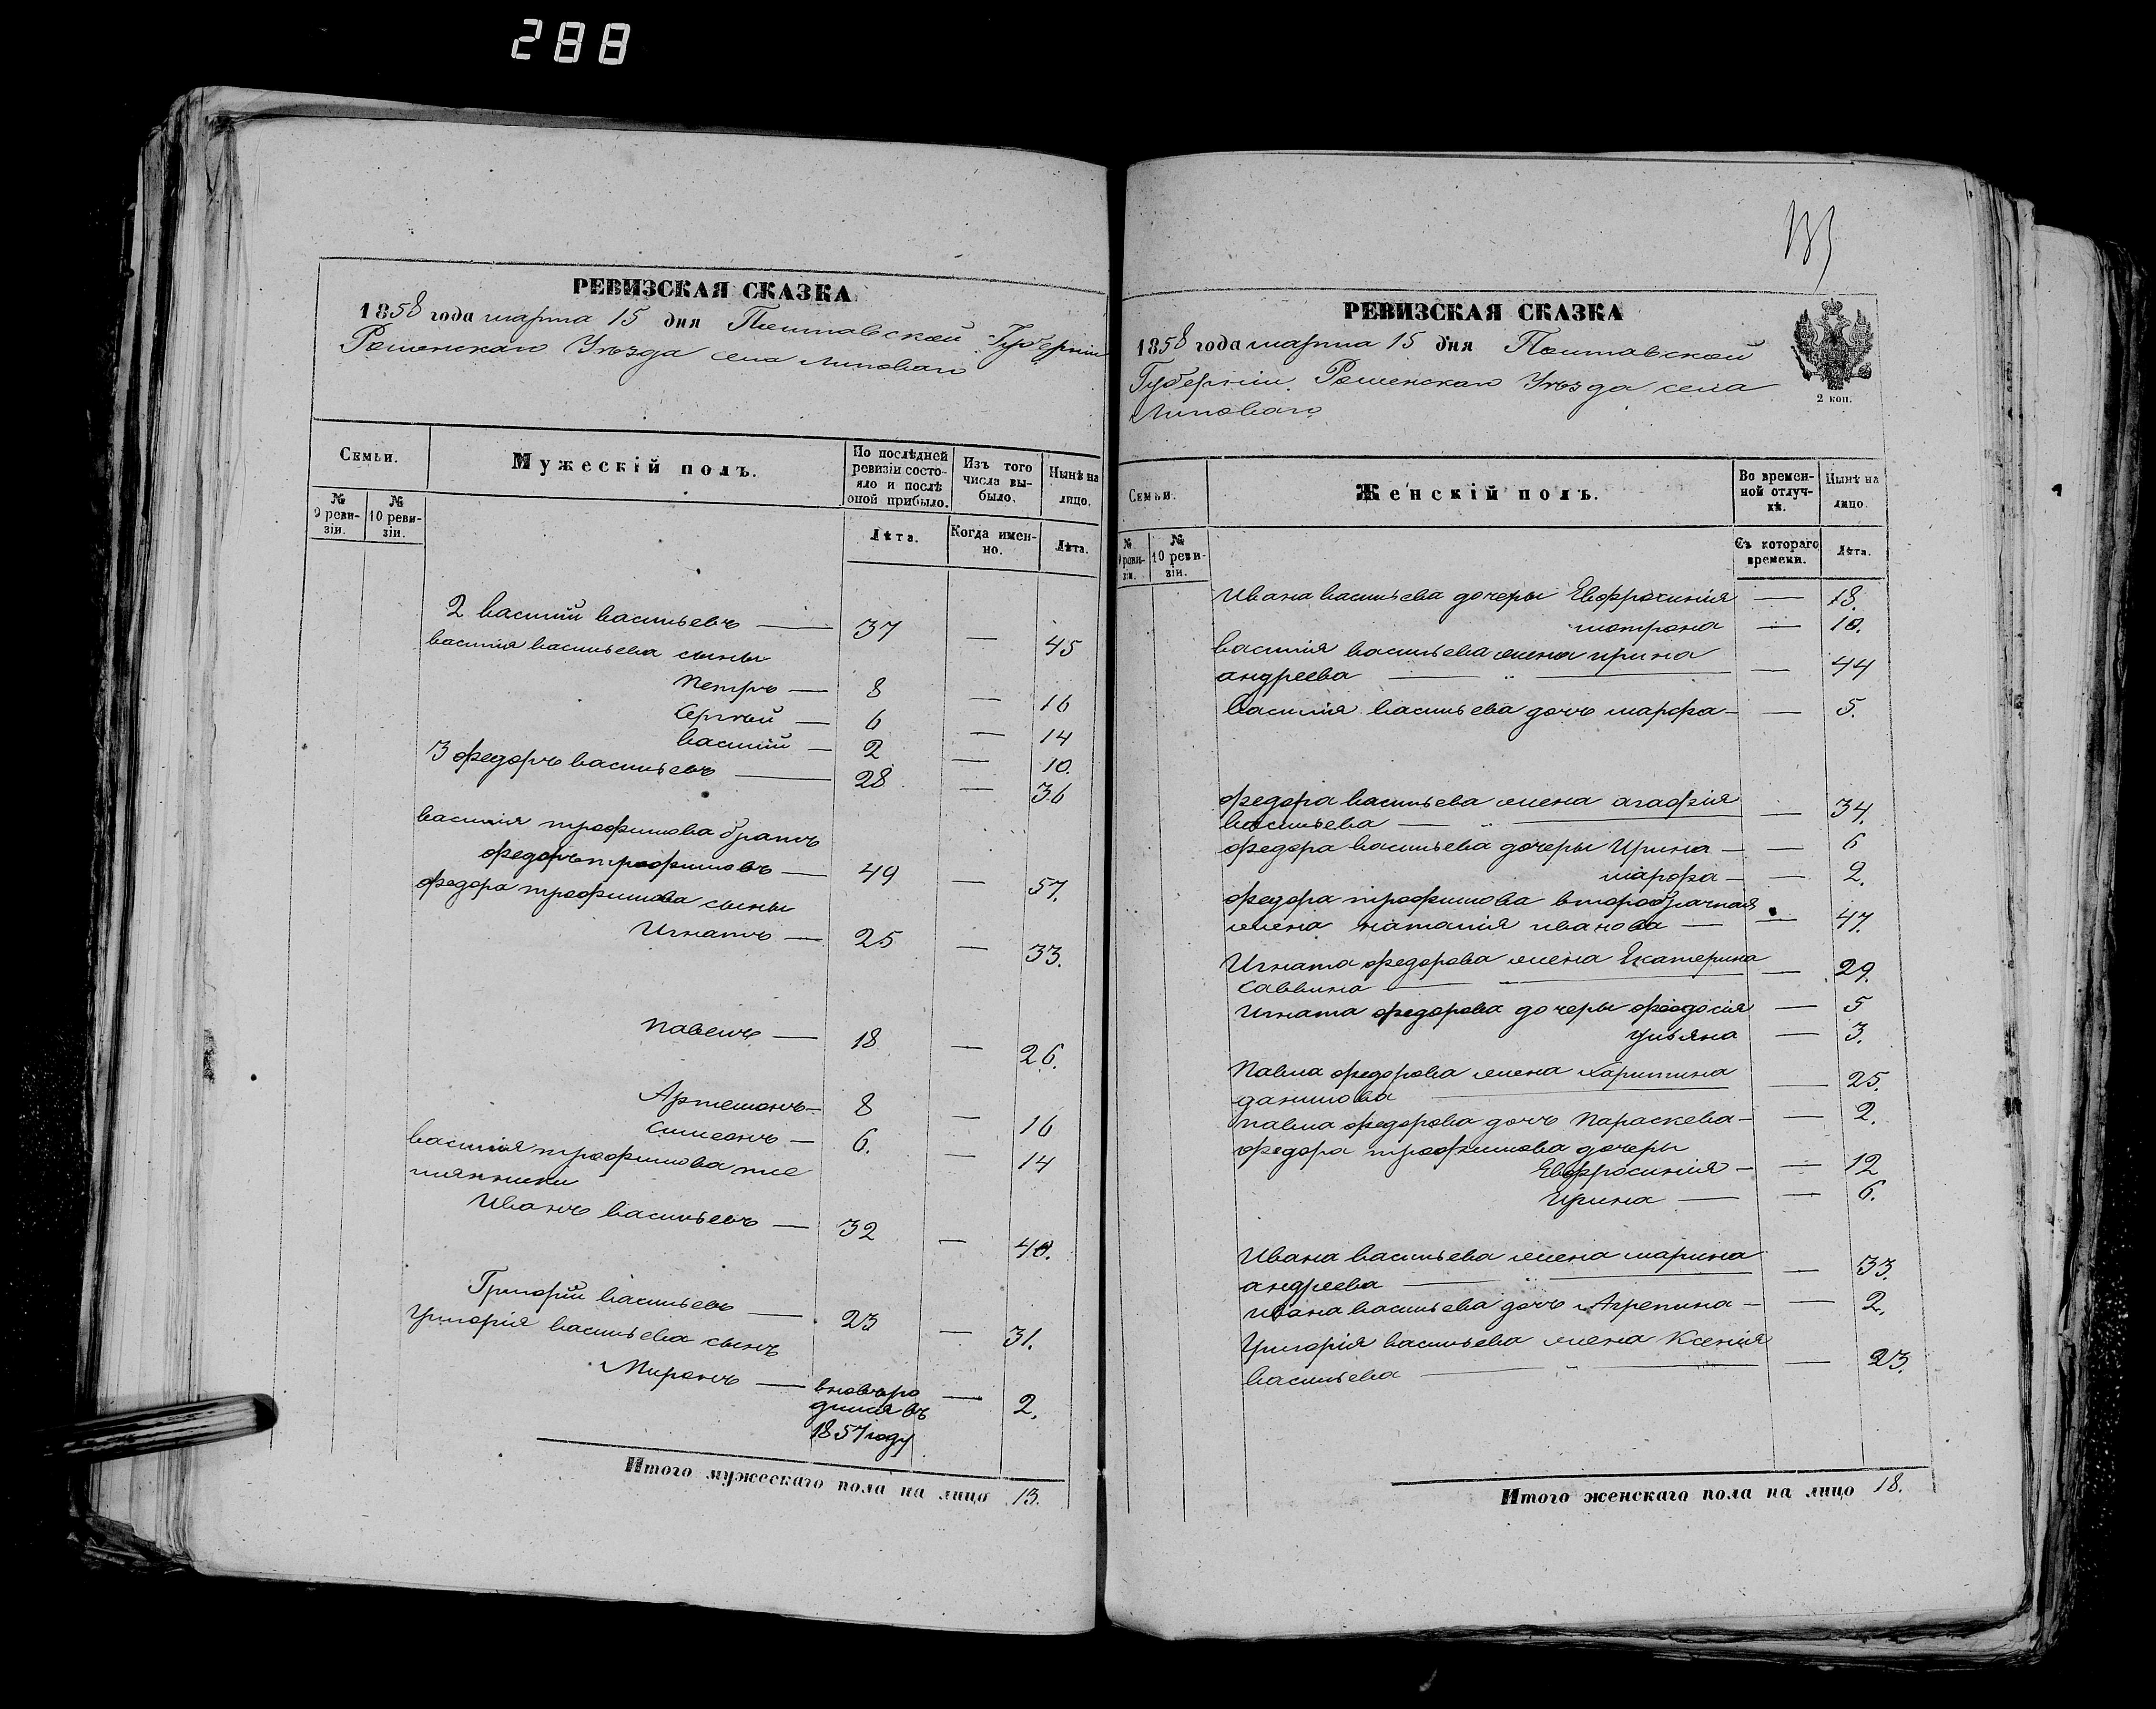 288
РЕВИЗСКАЯ СКАЗКА
1858 года марта 15 дня Полтавской Губерніи
Роменскаго Уѣзда села Липоваго
Семьи.
Мужескій полъ.
По послѣдней ревизіи состояло и послѣ оной прибыло.
Изъ того числа выбыло.
Нынѣ на лицо.
№ 9 ревизіи.
№ 10 ревизіи.
Лѣта.
Когда именно.
Лѣта.
2 Василій Васильевъ — 37 — 45
Василія Васильева сыны
Петръ — 8 — 16
Сергѣй — 6 — 14
Василій — 2 — 10.
3 Федоръ Васильевъ — 28 — 36
Василія Трофимова братъ
Федоръ Трофимовъ — 49 — 57.
Федора Трофимова сыны
Игнатъ — 25 — 33.
Павелъ — 18 — 26.
Артемонъ — 8 — 16
Симеонъ — 6. — 14
Василія Трофимова пле
мянники
Иванъ Васильевъ — 32 — 40.
Григорій Васильевъ — 23 — 31.
Григорія Васильева сынъ
Миронъ — вновь ро — 2.
дился въ
1857 году
Итого мужескаго пола на лицо 13.
РЕВИЗСКАЯ СКАЗКА
1858 года марта 15 дня Полтавской
Губерніи Роменскаго Уѣзда села
Липоваго
2 коп.
Семьи.
Женскій полъ.
Во временной отлучкѣ.
Нынѣ на лицо.
№ 9 ревизіи.
№ 10 ревизіи.
Съ котораго времени.
Лѣта.
Ивана Васильева дочеры Евфросинія — 18.
Мотрона — 10.
Василія Васильева жена Ирина
Андреева — " — 44
Василія Васильева дочь Марфа — — 5.
Федора Васильева жена Агафія
Васильева — " — 34.
Федора Васильева дочеры Ирина — — 6
Марфа — — 2.
Федора Трофимова второбрачная
жена Наталія Иванова — — 47.
Игната Федорова жена Екатерина
Саввина — " — 29.
Игната Федорова дочеры Феодосія — 5
Ульяна — 3.
Павла Федорова жена Харитина
Данилова — 25.
Павла Федорова дочь Параскева — — 2.
Федора Трофимова дочеры
Евфросинія — — 12
Ирина — — 6.
Ивана Васильева жена Марина
Андреева — " — 33.
Ивана Васильева дочь Агрепина — — 2.
Григорія Васильева жена Ксенія
Васильева — " — 23.
Итого женскаго пола на лицо 18.